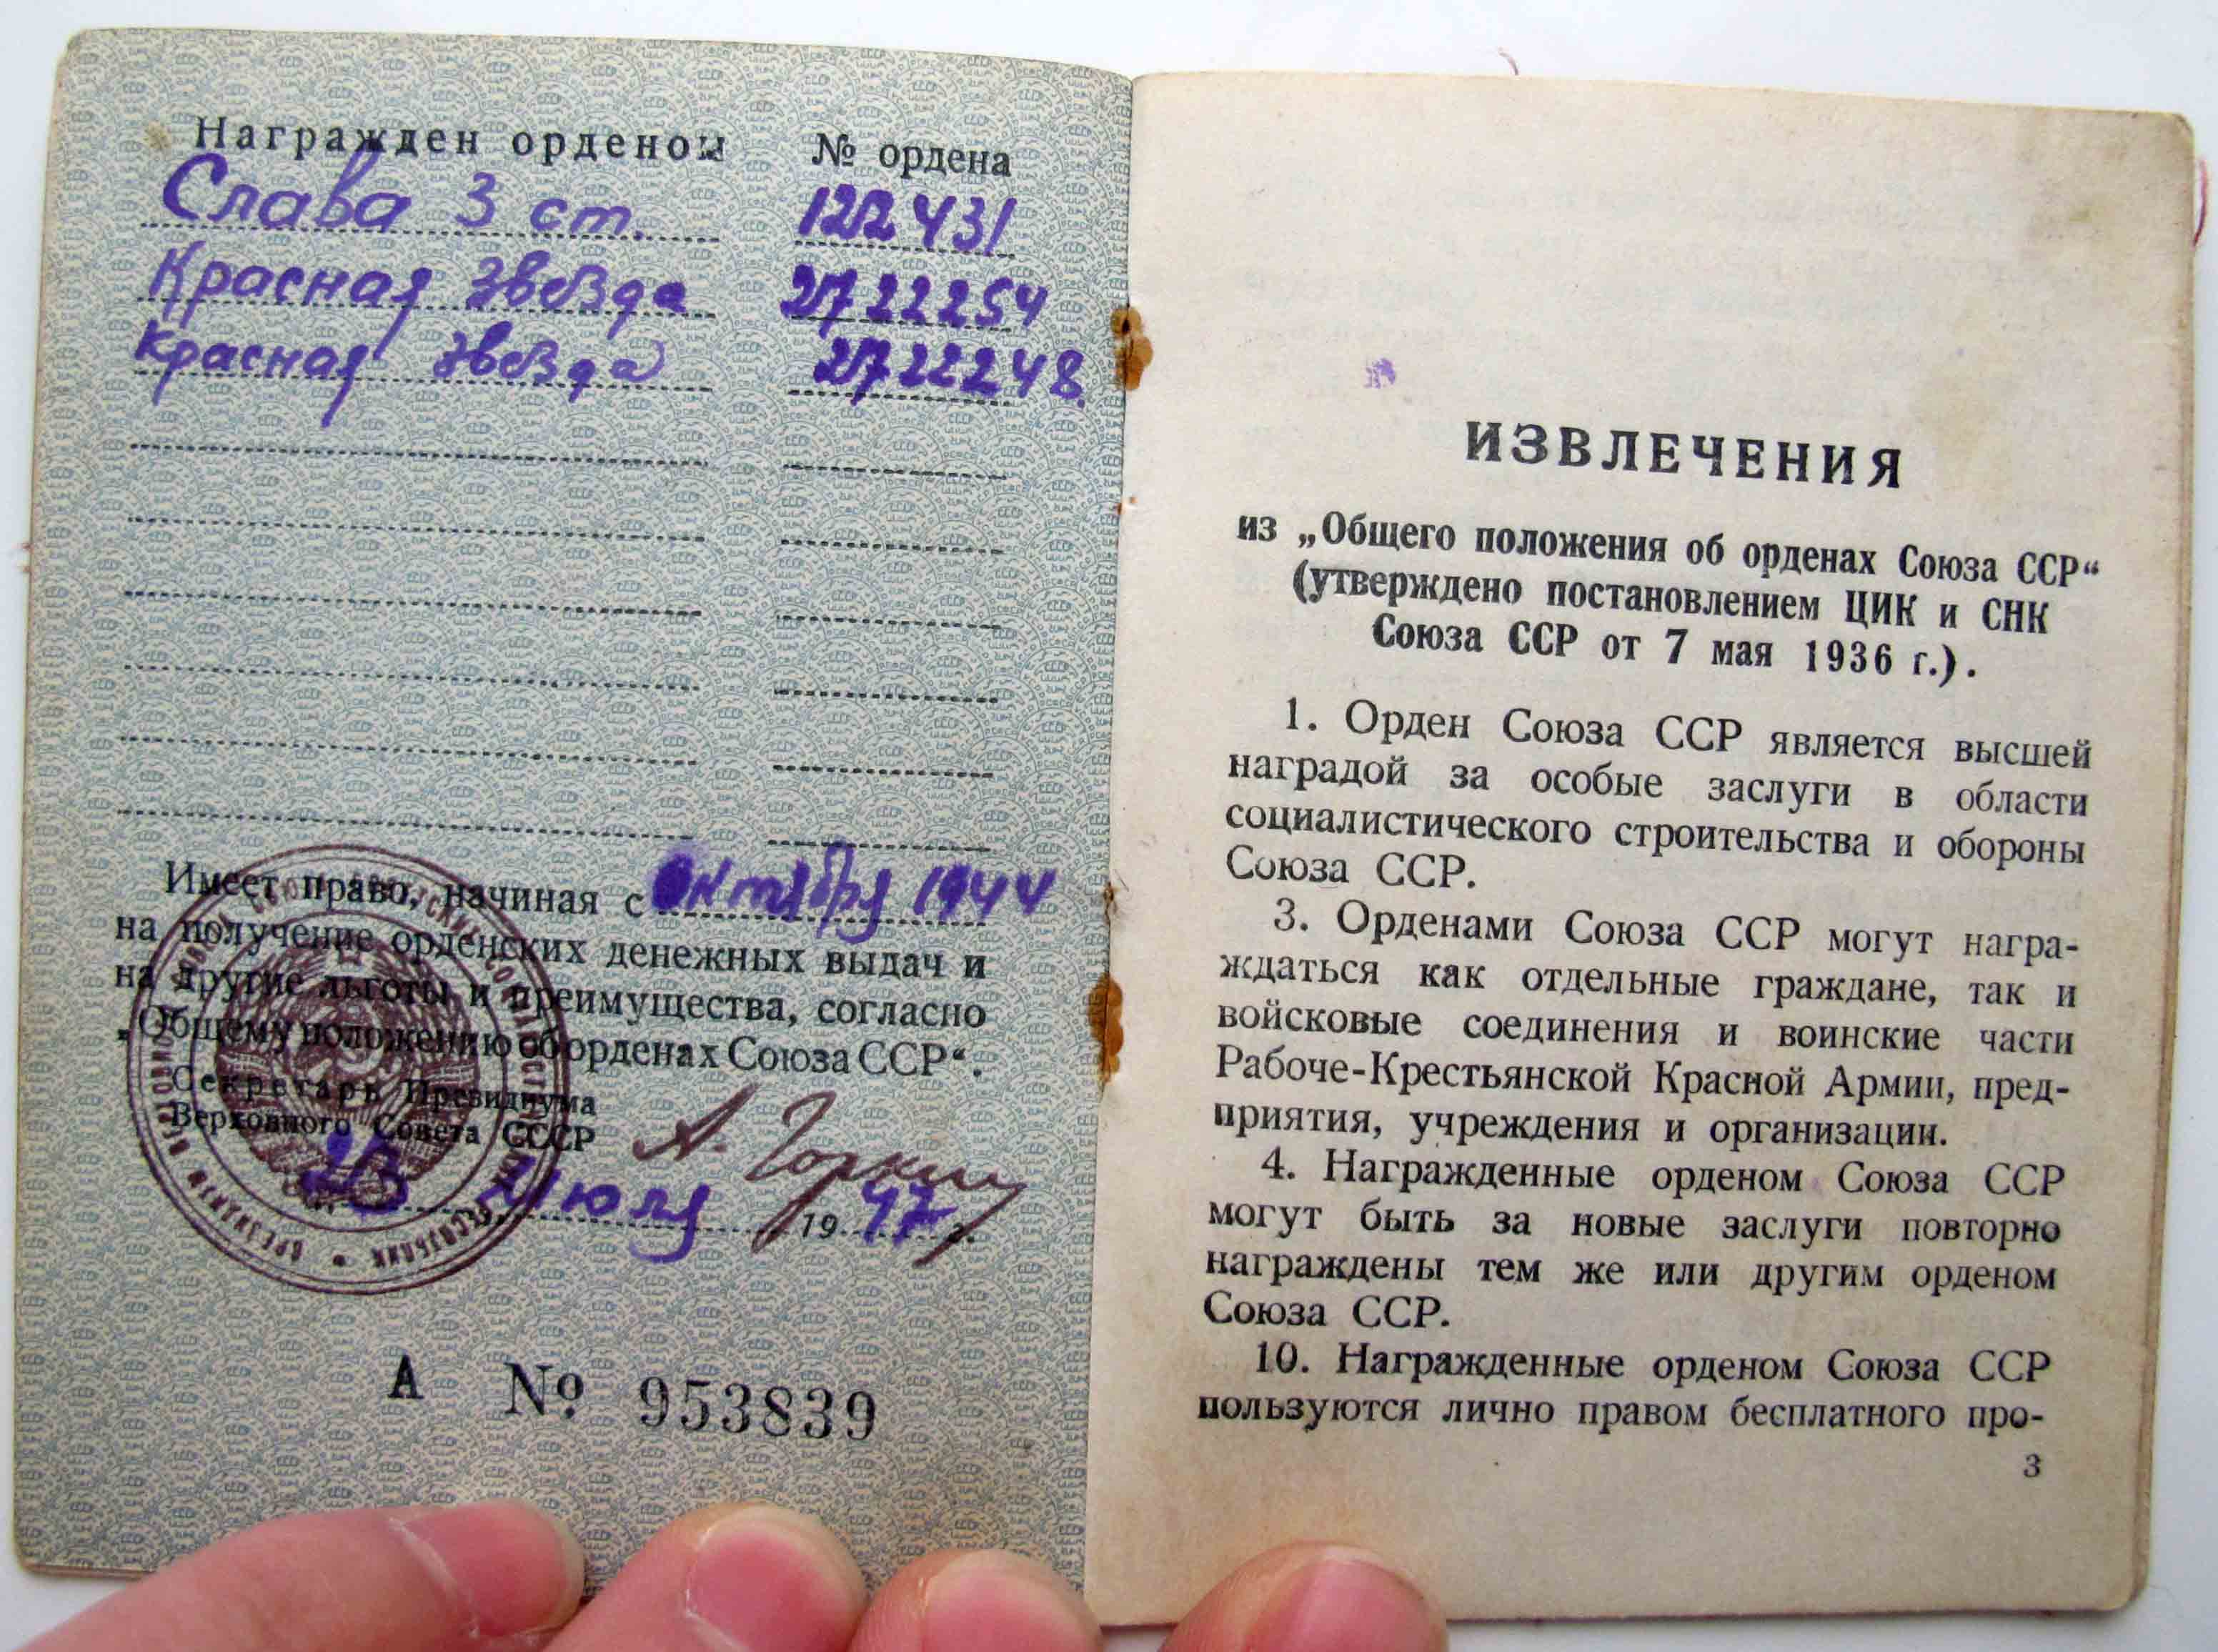 Награжден орденом № ордена
Слава 3 ст. 122431
Красная Звезда 2722254
Красная Звезда 2722248.
Имеет право, начиная с Октября 1944
на получение орденских денежных выдач и
на другие льготы и преимущества, согласно
„Общему положению об орденах Союза ССР“.
Секретарь Президиума
Верховного Совета СССР А. Горкин
Июля 1947 г.
А № 953839
ИЗВЛЕЧЕНИЯ
из „Общего положения об орденах Союза ССР“
(утверждено постановлением ЦИК и СНК
Союза ССР от 7 мая 1936 г.).
1. Орден Союза ССР является высшей
наградой за особые заслуги в области
социалистического строительства и обороны
Союза ССР.
3. Орденами Союза ССР могут награ-
ждаться как отдельные граждане, так и
войсковые соединения и воинские части
Рабоче-Крестьянской Красной Армии, пред-
приятия, учреждения и организации.
4. Награжденные орденом Союза ССР
могут быть за новые заслуги повторно
награждены тем же или другим орденом
Союза ССР.
10. Награжденные орденом Союза ССР
пользуются лично правом бесплатного про-
3